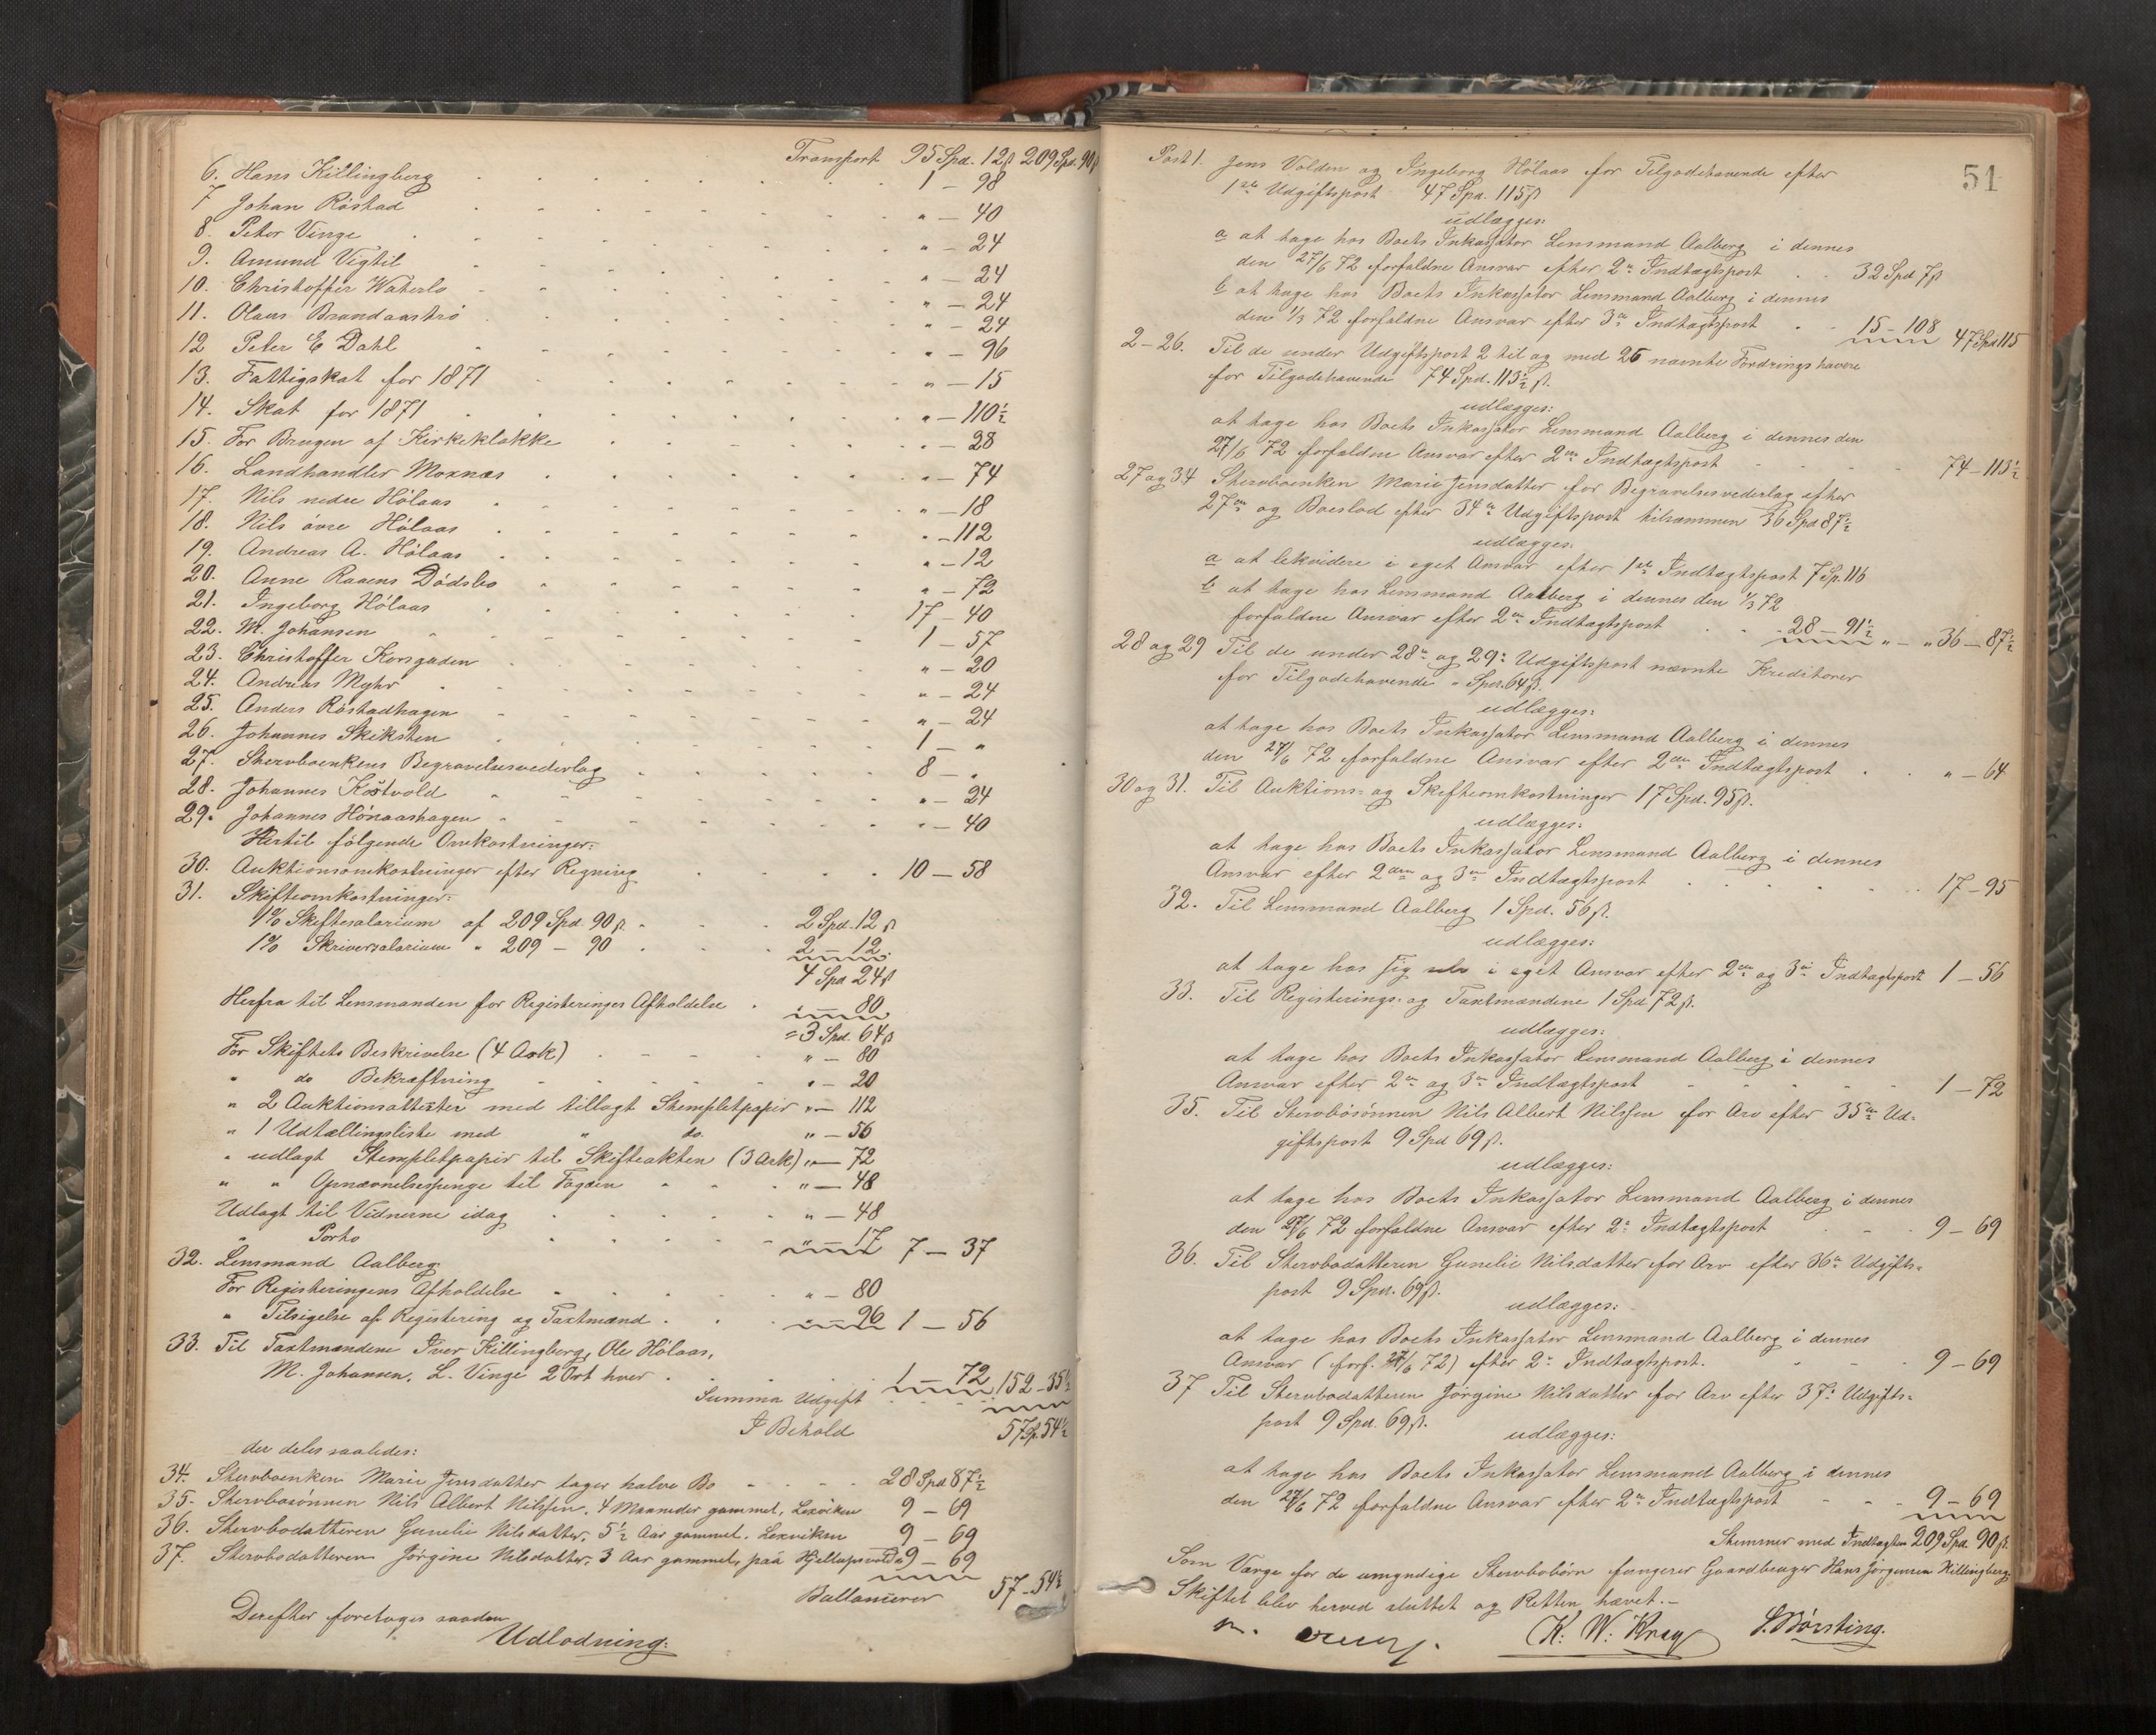 Transport 95 Spd. 12 ß 209 Spd. 90 ß
6. Hans Killingberg 1 – 98
7 Johan Röstad " – 40
8. Peter Vinge " – 24
9. Amund Vigtil " – 24
10. Christoffer Waterlo " – 24
11. Olaus Brandaaströ " – 24
12 Peter E Dahl " – 96
13. Fattigskat for 1871 " – 15
14. Skat for 1871 " – 110½
15. For Brugen af Kirkeklokke " – 28
16. Landhandler Moxnæs " – 74
17. Nils nedre Hólaas " – 18
18. Nils övre Hólaas " – 112
19. Andreas A. Hólaas " – 12
20. Anne Raaens Dödsbo " – 72
21. Ingeborg Hólaas 17 – 40
22. M. Johansen 1 – 57
23. Christoffer Korsgaden " – 20
24. Andreas Myhr " – 24
25. Anders Röstadhagen " – 24
26. Johannes Skiksten 1 – "
27. Stervboenkens Begravelsesvederlag 8 – "
28. JohannesKöstvold " – 24
29. Johannes Hónaashagen " – 40
Hertil fölgende Omkostninger:
30. Auktionsomkostninger efter Regning 10 – 58
31. Skifteomkostninger:
1% Skiftesalarium af 209 Spd. 90 ß. 2 Spd. 12 ß
1% Skriversalarium " 209 – 90 2 – 12.
4 Spd 24 ß
Herfra til Lensmanden for Registeringes Afholdelse 80
= 3 Spd. 64 ß
For Skiftets Beskrivelse (4 Ark) " – 80
" do Bekræftning " – 20
" 2 Auktionsattester med tillagt Stempletpapir " – 112
" 1 Udtællingsliste med " do. " – 56
" udlagt Stempletpapir til Skifteakten (3 Ark) " – 72
" " Opnævnelsespenge til Fogden " – 48
Udlagt til Vidnerne idag " – 48
" Porto " – 17 7 – 37
32. Lensmand Aalberg
For Registeringens Afholdelse " – 80
" Tilsigelse af Registering og Taxtmænd " – 96 1 – 56
33. Til Taxtmændene Iver Killingberg, Ole Hólaas,
M. Johansen, L. Vinge 2 Ort hver 1 – 72 152 – 35½
Summa Udgift
I Behold 57 Sp. 54½
der deles saaledes:
34. Stervboenken Marie Jensdatter tager halve Bo 28 Spd 87½
35. Stervbosönnen Nils Albert Nilssen, 4 Maaneder gammel, Lexviken 9 – 69
36. Stervbodatteren Gunelie Nilsdatter, 5½ Aar gammel. Lexviken 9 – 69
37. Stervbodatteren Jörgine Nilsdatter, 3 Aar gammel, paa 9 – 69
Ballancerer 57 – 54½
Derefter foretoges saadan
Udlodning:
51
Post 1. Jens Volden og Ingeborg Hólaas for Tilgodehavende efter
1ste Udgiftspost 47 Spd. 115 ß
udlægges:
a at tage hos Boets Inkassator Lensmand Aalberg i dennes
den 27/6 72 forfaldne Ansvar efter 2n Indtægtspost 32 Spd 7 ß
b at tage hos Boets Inkassator Lensmand Aalberg i dennes
den 1/3 72 forfaldne Ansvar efter 3die Indtægtspost 15 – 108 47 Spd 115
2 – 26. Til de under Udgiftspost 2 til og med 26 nævnte Fordringshavere
for Tilgodehavende 74 Spd. 113½ ß.
udlægges:
at tage hos Boets Inkassator Lensmand Aalberg i dennes den
27/6 72 forfaldne Ansvar efter 2en Indtægtspost 74 – 113½
27 og 34 Stervboenken Marie Jensdatter for Begravelsesvederlag efter
27en og Boeslod efter 34e Udgiftspost tilsammen 36 Spd 87½
udlægges.
a at likvidere i eget Ansvar efter 1ste Indtægtspost 7 Sp. 116
b at tage hos Lensmand Aalberg i dennes den 1/3 72
forfaldne Ansvar efter 2en Indtægtspost 28 – 91½ " – " 36 – 87½
28 og 29 Til de under 28e og 29e Udgiftspost nævnte Kreditorer
for Tilgodehavende " Spd. 64 ß.
udlægges:
at tage hos Boets Inkassator Lensmand Aalberg i dennes
den 27/6 72 forfaldne Ansvar efter 2den Indtægtspost " – 64
30 og 31. Til Auktions- og Skifteomkostninger 17 Spd. 95 ß.
udlægges:
at tage hos Boets Inkassator Lensmand Aalberg i dennes
Ansvar efter 2den og 3e Indtægtspost 17 – 95
32. Til Lensmand Aalberg 1 Spd. 56 ß.
udlægges:
at tage hos sig selv i eget Ansvar efter 2en og 3e Indtægtspost 1 – 56
33. Til Registerings- og Taxtmændene 1 Spd 72 ß.
udlægges:
at tage hos Boets Inkassator Lensmand Aalberg i dennes
Ansvar efter 2en og 3e Indtægtspost 1 – 72
35. Til Stervbosönnen Nils Albert Nilssen for Arv efter 35te Ud-
giftspost 9 Spd 69 ß.
udlægges:
at tage hos Boets Inkassator Lensmand Aalberg i dennes
den 27/6 72 forfaldne Ansvar efter 2e Indtægtspost 9 – 69
36. Til Stervbodatteren Gunelie Nilsdatter for Arv efter 36te Udgifts-
post 9 Spd. 69 ß.
udlægges:
at tage hos Boets Inkassator Lensmand Aalberg i dennes
Ansvar (forf. 27/6 72) efter 2e Indtægtspost. 9 – 69
37 Til Stervbodatteren Jörgine Nilsdatter for Arv efter 37e Udgifts-
post 9 Spd. 69 ß.
udlægges:
at tage hos Boets Inkassator Lensmand Aalberg i dennes
den 27/6 72 forfaldne Ansvar efter 2e Indtægtspost 9 – 69
Stemmer med Indtægten 209 Spd. 90 ß.
Som Værge for de umyndige Stervbobörn fungerer Gaardbruger Hans Jörgensen Killingberg.
Skiftet blev herved sluttet og Retten hævet. –
K. W. Krag S. Börsting.